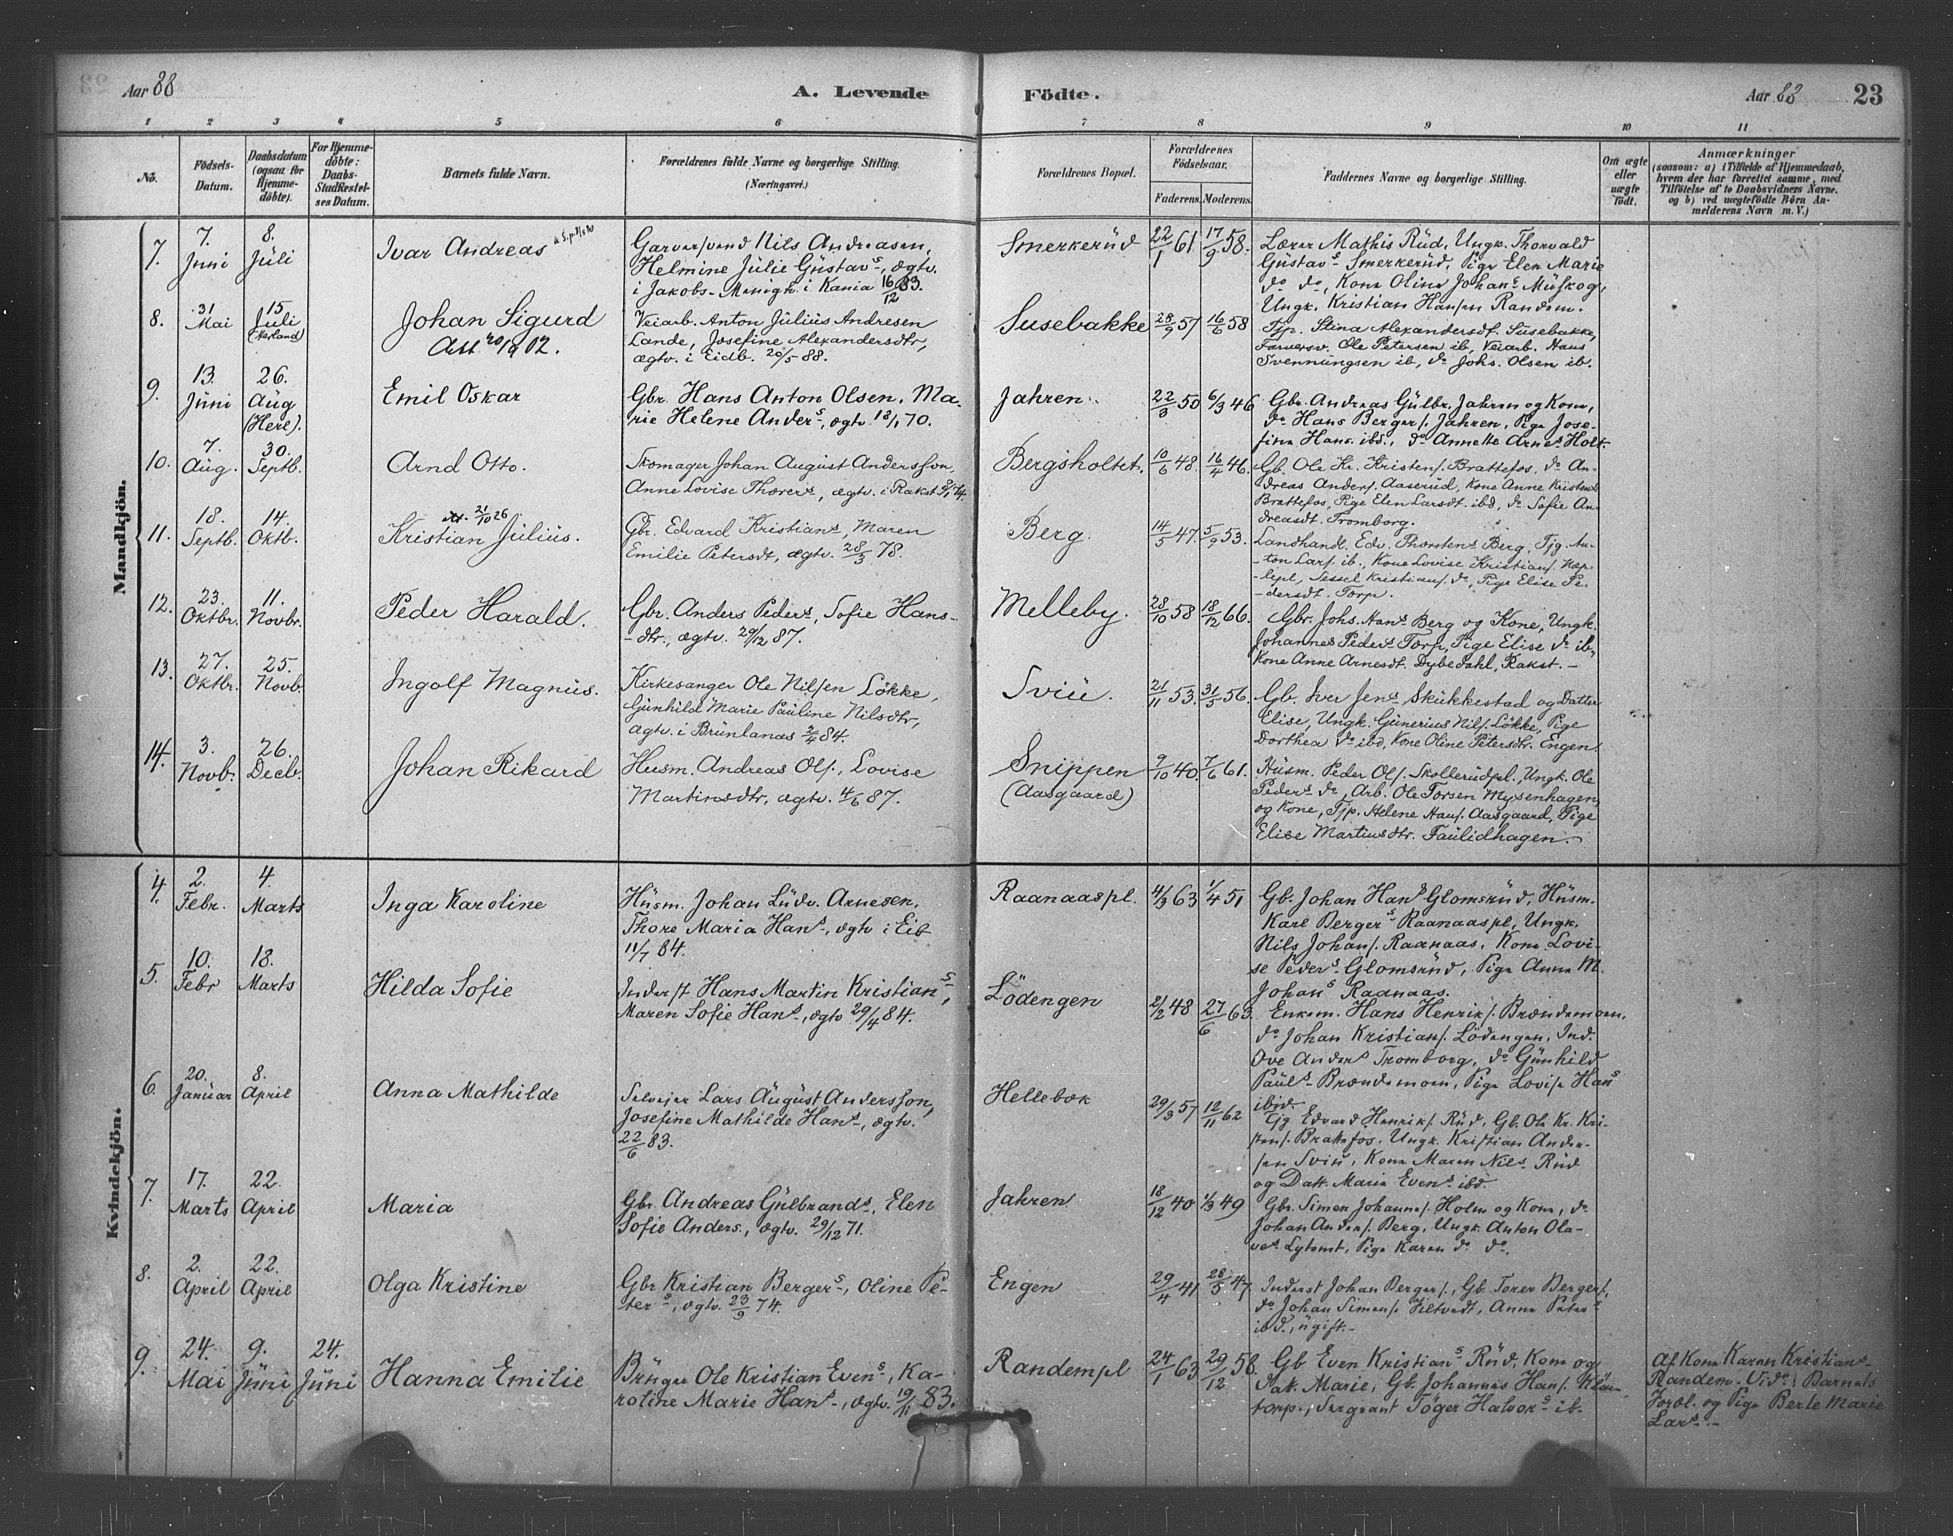 Aar 88
A. Levende
Födte.
Aar 88
23
1 2 3 4 5 6 7 8 9 10 11
No.
Födsels-Datum.
Daabsdatum (ogsaa for Hjemme-döbte).
For Hjemme-döbte: Daabs-Stadfæstel-ses Datum.
Barnets fulde Navn.
Forældrenes fulde Navne og borgerlige Stilling.
(Næringsvei.)
Forældrenes Bopæl.
Forældrenes Födselsaar.
Faderens. Moderens.
Faddernes Navne og borgerlige Stilling.
Om ægte eller uægte födt.
Anmærkninger
(saasom: a) i Tilfælde af Hjemmedaab,
hvem der har forrettet samme, med
Tilföielse af to Daabsvidners Navne.
og b) ved uægtefödte Börn An-
melderens Navn m. V.)
Mandkjön.
7. 7. Juni 8. Juli Ivar Andreas
Garversvend Nils Andreasen,
Helmine Julie Gustavs., ægtv.
i Jakobs-Menigh. i Kania 16/12 83.
Smerkerud 22/1 61 17/9 58.
Lærer Mathis Rud, Ungk. Thorvald
Gustavs. Smerkerud, Pige Elen Marie
do do, Kone Oline Johans. Muskog,
Ungk. Kristian Hansen Randem.
8. 31 Mai 15 Juli Johan Sigurd
Att 20/9 02.
Veiarb. Anton Julius Andresen
Lande, Josefine Alexandersdtr,
ægtv. i Eidb. 20/5 88.
Susebakke 28/9 57 16/6 58
Tjp. Stina Alexandersdt. Susebakke,
Farversv. Ole Petersen ib, Veiarb. Hans
Svenningsen ib, do Johs. Olsen ib.
9. 13. Juni 26. Aug (Here). Emil Oskar
Gbr. Hans Anton Olsen, Ma-
rie Helene Anders., ægtv. 18/1 70.
Jahren. 22/8 50 6/3 46
Gbr. Andreas Gulbr. Jahren og Kone,
do Hans Bergers. Jahren, Pige Jose-
fine Hans. ibd., do Annette Arnes. Holt
10. 7. Aug. 30. Septb. Arnd Otto.
Skomager Johan August Andersson,
Anne Lovise Thorers., ægtv. i Rakst
Bergsholtet. 10/6 48. 16/4 46.
Gb. Ole Kr. Kristens. Brattefos, do An-
dreas Anders. Aaserud, Kone Anne Kristensd
Brattefos, Pige Elen Larsdt. ibd, do Sofie An-
dreasdt. Tromborg.
11. 18. Septb. 14. Oktbr. 21/10 26 Kristian Julius.
Gbr. Edvard Kristians., Maren
Emilie Petersdt, ægtv. 28/3 78.
Berg. 14/5 47. 5/9 53.
Landhandl. Edv. Thorstens. Berg, Tjg. An-
ton Lars. ib., Kone Lovise Kristians.
Sessel Kristians. do, Pige Elise Pe-
dersdt. Torp.
12. 23. Oktbr. 11. Novbr. Peder Harald.
Gbr. Anders Peders., Sofie Hans-
dtr., ægtv. 29/12 87.
Melleby. 28/10 58 18/12 66.
Gbr. Johs. Hans. Berg og Kone, Ungk.
Johannes Peders. Torp, Pige Elise do ib.,
Kone Anne Arnesdt. Dybedahl, Rakst.
13. 27. Oktbr. 25. Novb. Ingolf Magnus.
Kirkesanger Ole Nilsen Løkke,
Gunhild Marie Pauline Nilsdtr,
ægtv. i Brunlanæs 2/4 84.
Sviu. 21/11 53. 31/5 56.
Gb. Iver Jens. Skukkestad og Datter
Elise, Ungk. Gunerius Nils. Løkke, Pige
Dorthea do ibd, Kone Oline Petersdtr. Engen
14. 3. Novb. 26. Decb. Johan Rikard
Husm. Andreas Ols., Lovise
Martinsdtr, ægtv. 4/6 87.
Snippen (Aasgaard) 9/10 40. 7/6 61.
Husm. Peder Ols. Skollerudpl., Ungk. Ole
Peders. do, Arb. Ole Torsen Mysenhagen,
og Kone, Tjp. Helene Hans. Aasgaard, Pige
Elise Martinsdtr. Faulidhagen.
Kvindekjön.
4. 2. Febr. 4. Marts Inga Karoline
Husm. Johan Ludv. Arnesen,
Thore Maria Hans., ægtv i Eib
11/7 84.
Raanaaspl. 4/3 63 1/4 51
Gb. Johan Hans. Glomsrud, Husm.
Karl Bergers. Raanaaspl, Ungk.
Nils Johans. Raanaas, Kone Lovi-
se Peders. Glomsrud, Pige Anna M.
Johans. Raanaas.
5. 10. Febr 18. Marts Hilda Sofie
Inderst Hans Martin Kristians.,
Maren Sofie Hans., ægtv 29/4 84.
Lödengen 2/2 48 27/6 63.
Enkem. Hans Henriks. Brændemoen,
do Johan Kristians. Lödengen, Ind.
Ove Anders. Tromborg, do Gunhild
Pauls. Brændemoen, Pige Lovise Hans
ibid.
6. 20. Januar 8. April Anna Mathilde
Selveier Lars August Andersson,
Josefine Mathilde Hans., ægtv.
22/6 83.
Hellebæk 29/3 57 12/11 62
Tjg Edvard Henriks. Rud, Gb. Ole Kr. Kri-
stens. Brattefos, Ungk. Kristian Ander-
sen Sviu, Kone Maren Nils. Rud
og Datt. Maria Evens. ibd.
7. 17. Marts 22. April Maria
Gbr. Andreas Gulbrands., Elen
Sofie Anders., ægtv. 29/12 71.
Jahren 18/12 40 1/3 49
Gbr. Simen Johannes. Holm og Kone, do
Johan Anders. Berg, Ungk. Anton Ola-
ves. Lytomt, Pige Karen do do.
8. 2. April 22. April Olga Kristine
Gbr Kristian Bergers., Oline Pe-
ters., ægtv. 23/9 74.
Engen 29/4 41 28/5 47
Inderst Johan Bergers., Gb. Torer Bergers.,
do Johan Simens. Hiltvedt, Anne Peters.
ibd., ugift.
9. 24. Mai 9. Juni 24. Juni Hanna Emilie
Bruger Ole Kristian Evens., Ka-
roline Marie Hans., ægtv. 19/11 83.
Randempl 24/1 63 29/12 58.
Gb Even Kristians. Rud, Kone og
Dat. Marie, Gb. Johannes Hans.
torp., Sergeant Töger Halvors. ib.
Af Kone Karen Kristians.
Randem. Vidn: Barnets
Foræl. og Pige Berte Marie
Lars.